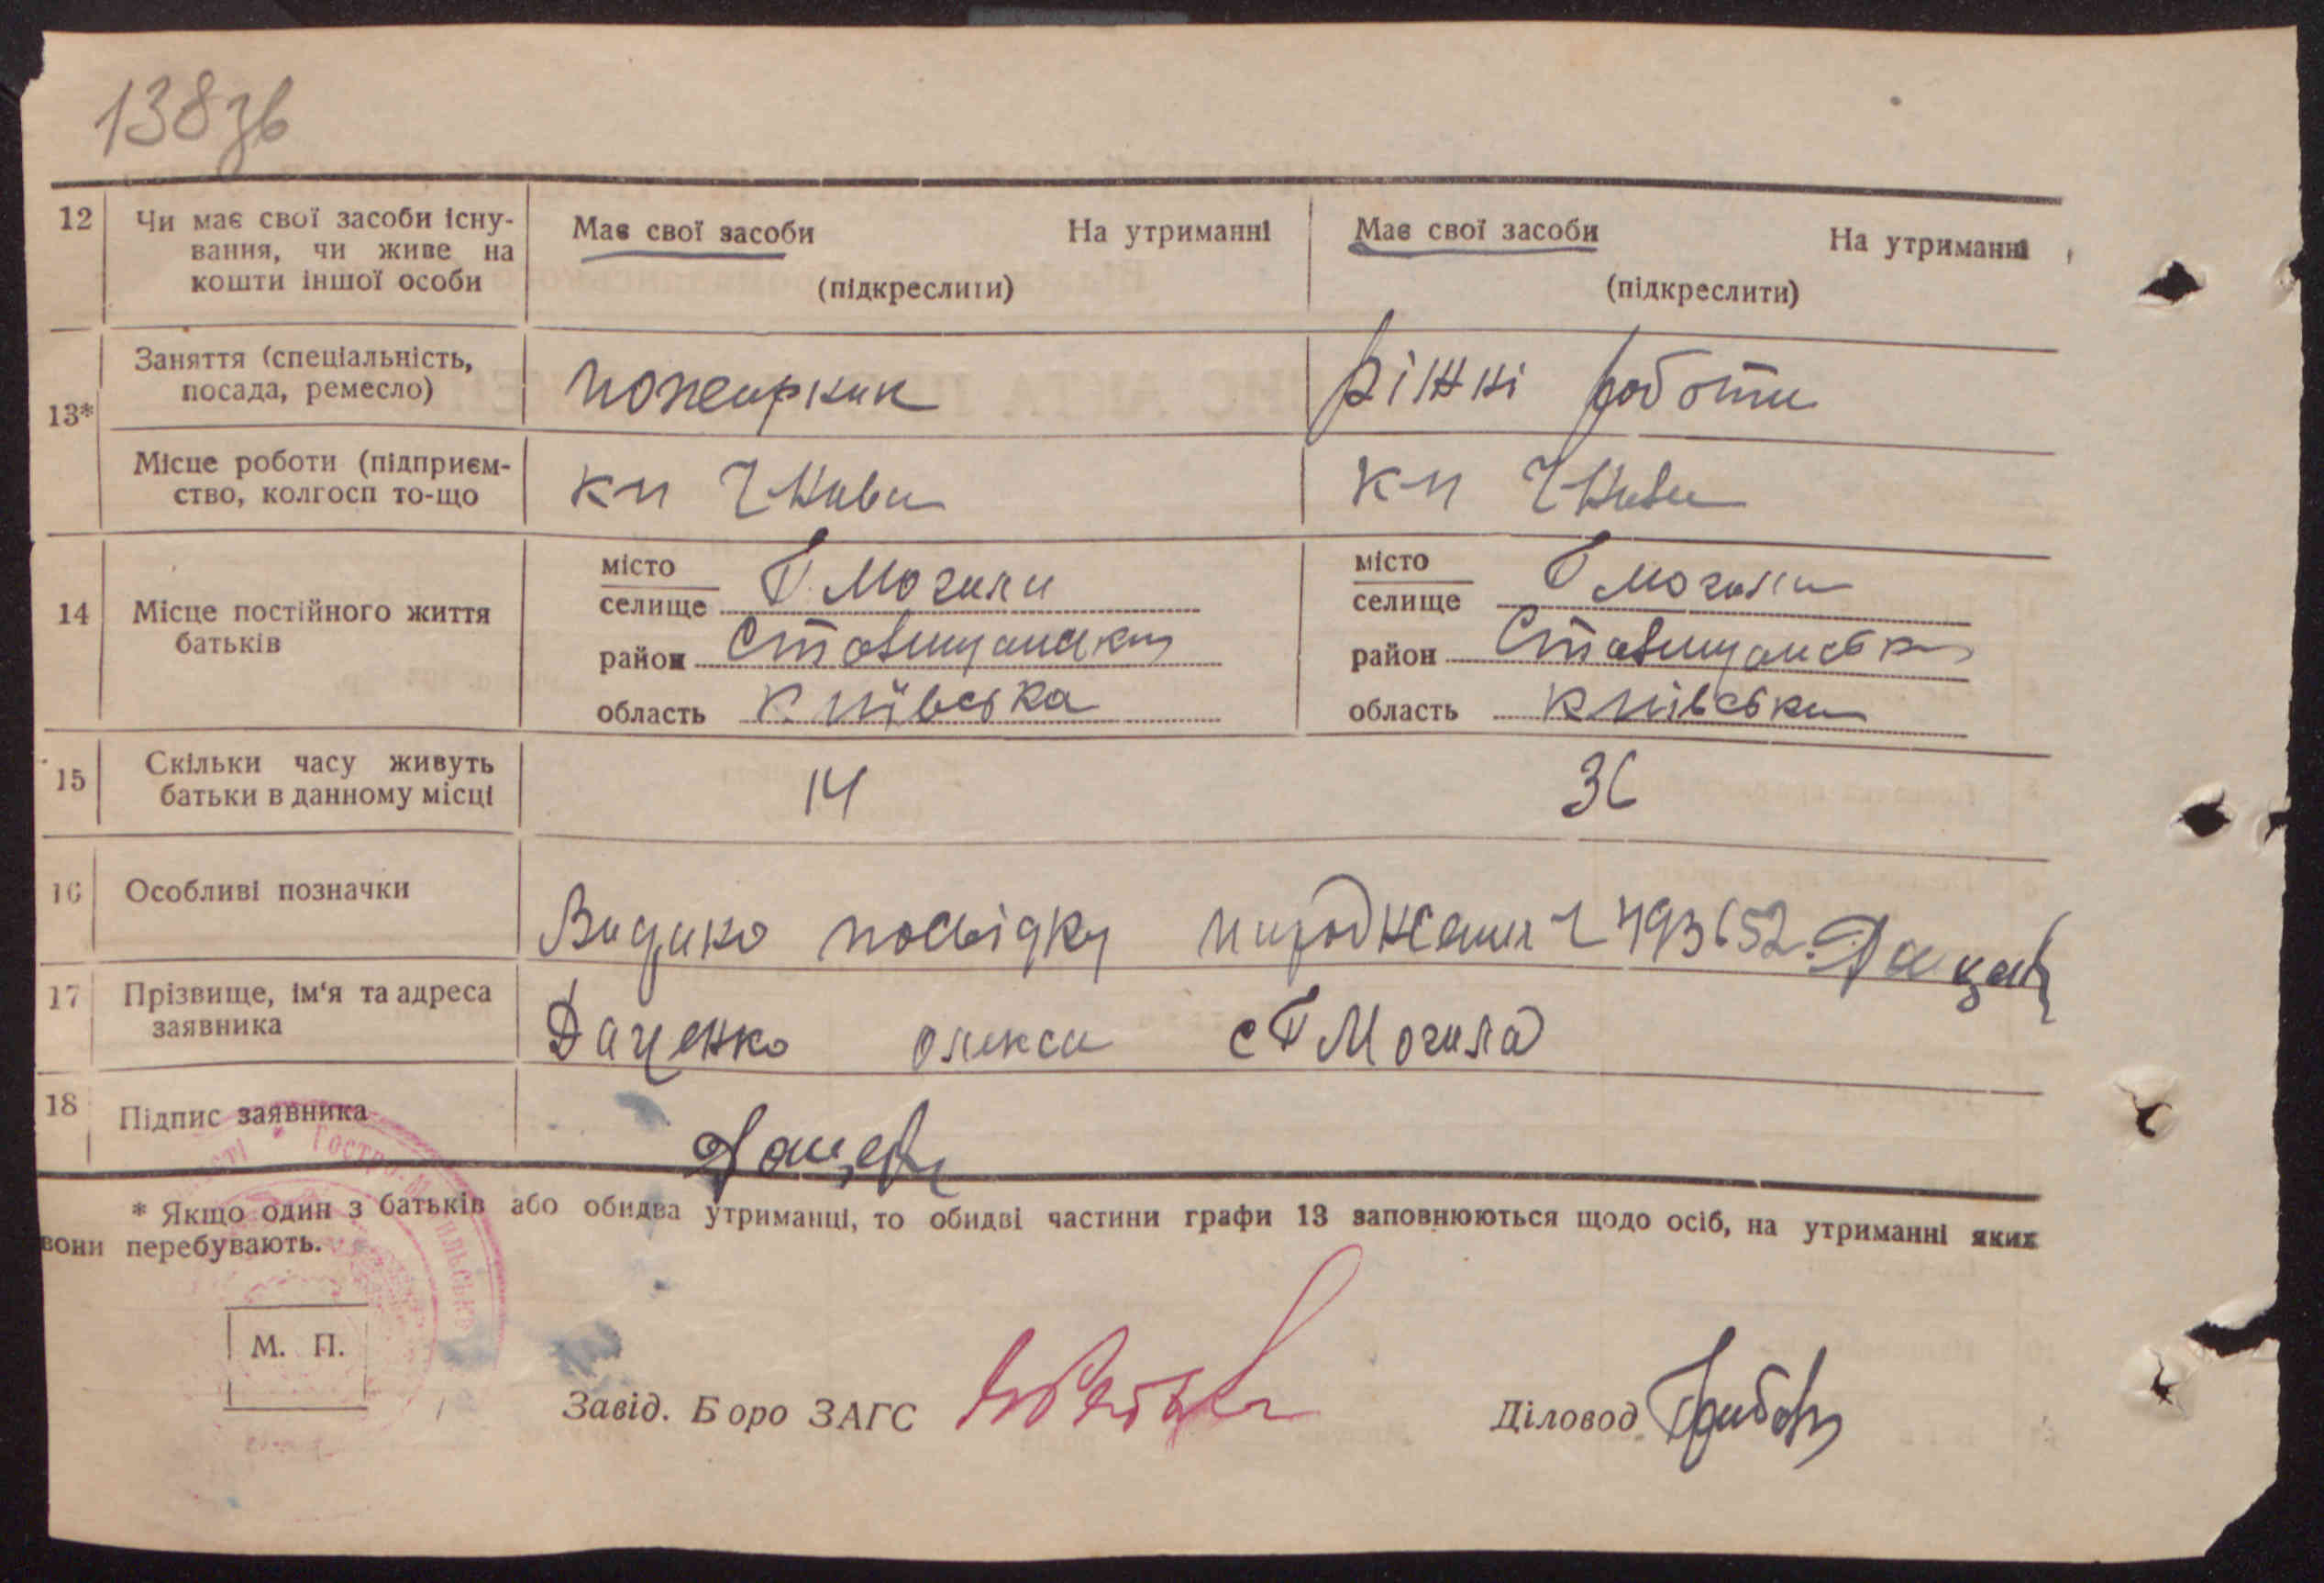 138 зв
12 Чи має свої засоби існу-
вання, чи живе на
кошти іншої особи
Має свої засоби На утриманні
(підкреслити)
Має свої засоби На утриманні
(підкреслити)
13*
Заняття (спеціальність,
посада, ремесло)
пожеирник
ріжні роботи
Місце роботи (підприєм-
ство, колгосп то-що
кп
кп
14 Місце постійного життя
батьків
місто
селище Г. Могили
район Ставищанськ
область Київська
місто
селище Г Могили
район Ставищанськ
область Київська
15 Скільки часу живуть
батьки в данному місці
14
36
16 Особливі позначки
Видано посвідку народження 493652.
17 Прізвище, ім'я та адреса
заявника
Даценко олекса с Г Могила
18 Підпис заявника
* Якщо один з батьків або обидва утриманці, то обидві частини графи 13 заповнюються щодо осіб, на утриманні яких
вони перебувають.
М. П.
Завід. Боро ЗАГС
Діловод